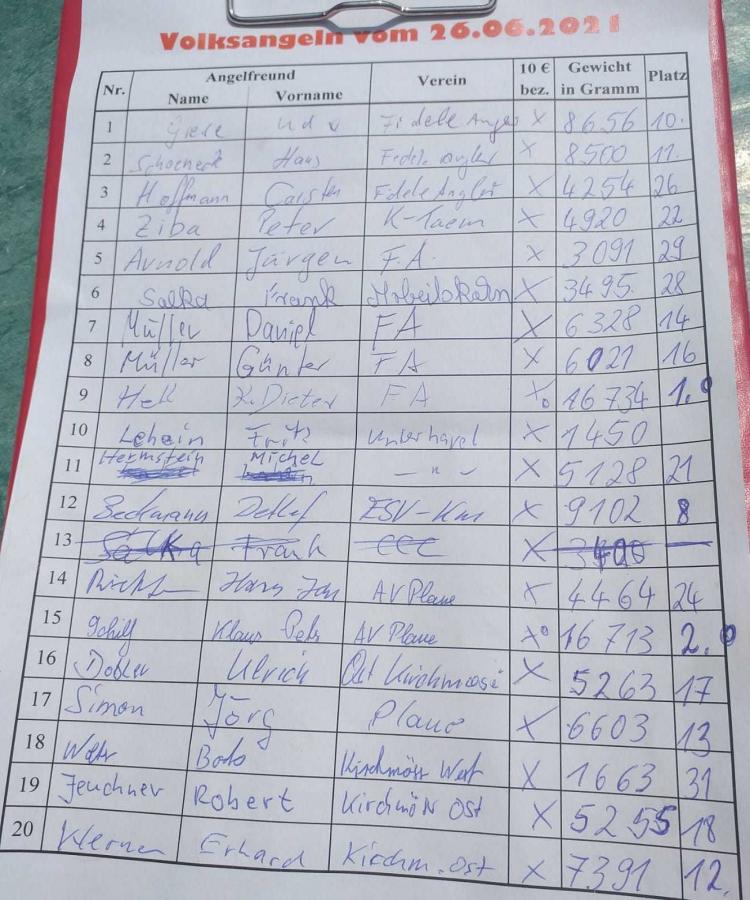 Volksangeln vom 26.06.2021
Nr. Angelfreund Name Vorname Verein 10 € bez. Gewicht in Gramm Platz
1 Giese Udo Fidele Angler X 8656 10.
2 Schoeneck Hans Fidele Angler X 8500 11.
3 Hoffmann Carsten Fidele Angler X 4254 26
4 Ziba Peter K-Taem X 4920 22
5 Arnold Jürgen F.A. X 3091 29
6 Salka Frank X 3495 28
7 Müller Daniel FA X 6328 14
8 Müller Günter FA X 6021 16
9 K. Dieter FA X 16734 1.
10 Fritz Unterhavel X 1450
11 Hermstein Michel — " — X 5128 21
12 Beckmann Detlef X 9102 8
13 Salka Frank CCC X
14 AV Plaue X 4464 24
15 Klaus Peter AV Plaue X 16713 2.
16 Ulrich Ost Kirchmöser X 5263 17
17 Simon Jörg Plaue X 6603 13
18 Bodo Kirchmöser West X 1663 31
19 Jeuchner Robert Kirchmös Ost X 5255 18
20 Werner Erhard Kirchm. Ost X 7391 12.